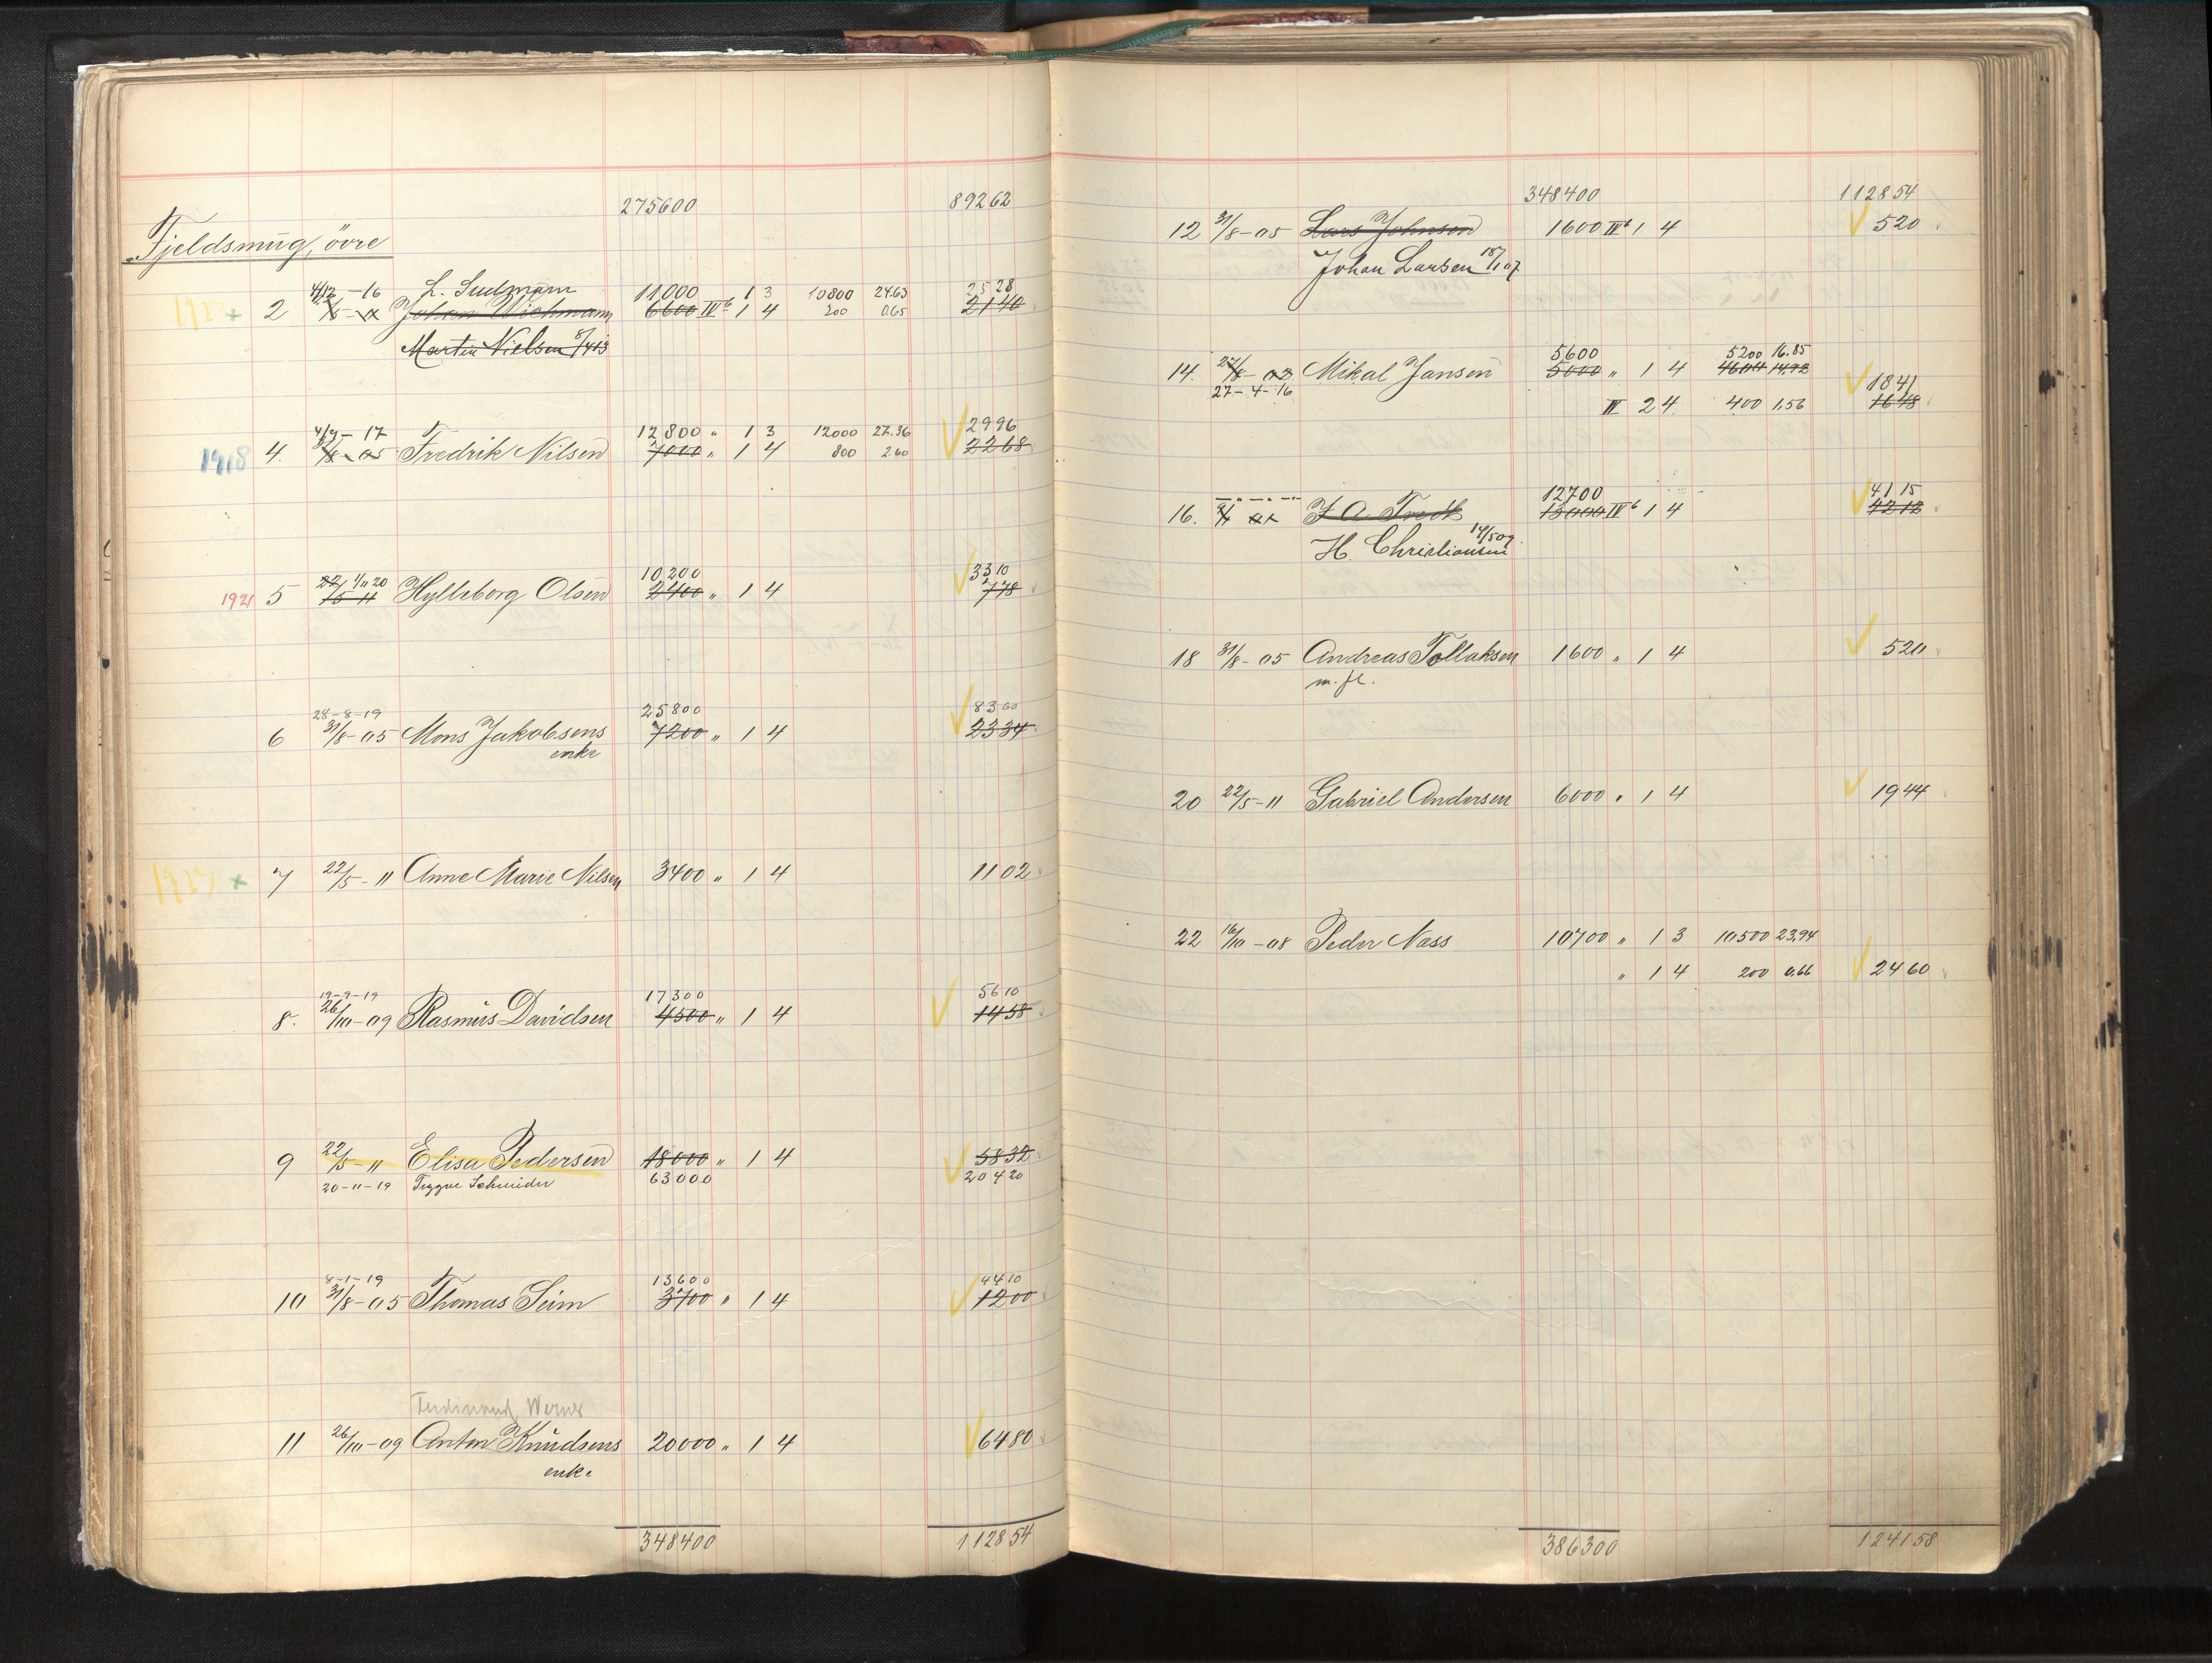 275600 89262
Fjeldsmug, övre
4/12 - 16 L. Sudmann 11000 1 3 10800 24.63 2528
2 Johan Wichmann 6600 IV b 1 4 200 0.65 2140
Martin Nielsen 8/4 13
4/9 - 17 12800 " 1 3 12000 27.36 2996
1918 4. 31/8 - 05 Fredrik Nilsen 7000 " 1 4 800 2.60 2268
1/11 20 10200 3310
1921 5 22/5 11 Hylleborg Olsen 2400 " 1 4 778
28-8-19 25800 8360
6 31/8 - 05 Mons Jakobsens 7200 " 1 4 2334
enke
1927 + 7 22/5 - 11 Anne Marie Nilsen 3400 " 1 4 1102
19-9-19 17300 5610
8. 26/10 - 09 Rasmus Davidsen 4500 " 1 4 1458
9 22/5 - 11 Elisa Pedersen 18000 " 1 4 5832
20-11-19 Tryggve Schneider 63000 20420
8-1-19 13600 4410
10 31/8 - 05 Thomas Seim 3700 " 1 4 1200
Ferdinand Werner
11 26/10 - 09 Anton Knudsens 20000 " 1 4 6480
enke
348400 112854
348400 112854
12 31/8 - 05 Lars Johnsen 1600 IV b 1 4 520
Johan Larsen 18/1 07
5600 5200 16.85
14. 27/8 - 02 Mikal Jansen 5000 " 1 4 4600 14.92 1841
27-4-16 IV 2 4 400 1,56 1648
12700 4115
16. J A Tvedt 13000 IV b 1 4 4212
H. Christiansen 14/5 09.
18 31/8 - 05 Andreas Tollaksen 1600 " 1 4 520
m. fl.
20 22/5 - 11 Gabriel Andersen 6000 " 1 4 1944
22 16/10 - 08 Peder Næss 10700 " 1 3 10500 23,94
" 1 4 200 0,66 2460
386300 124158